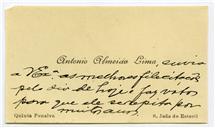 Antonio Almeida Lima, envia
a V. Ex.ª as melhores felicitações
pelo dia de hoje e faz votos
para que ele se repita por
muitos anos.
Quinta Penalva S. João do Estoril